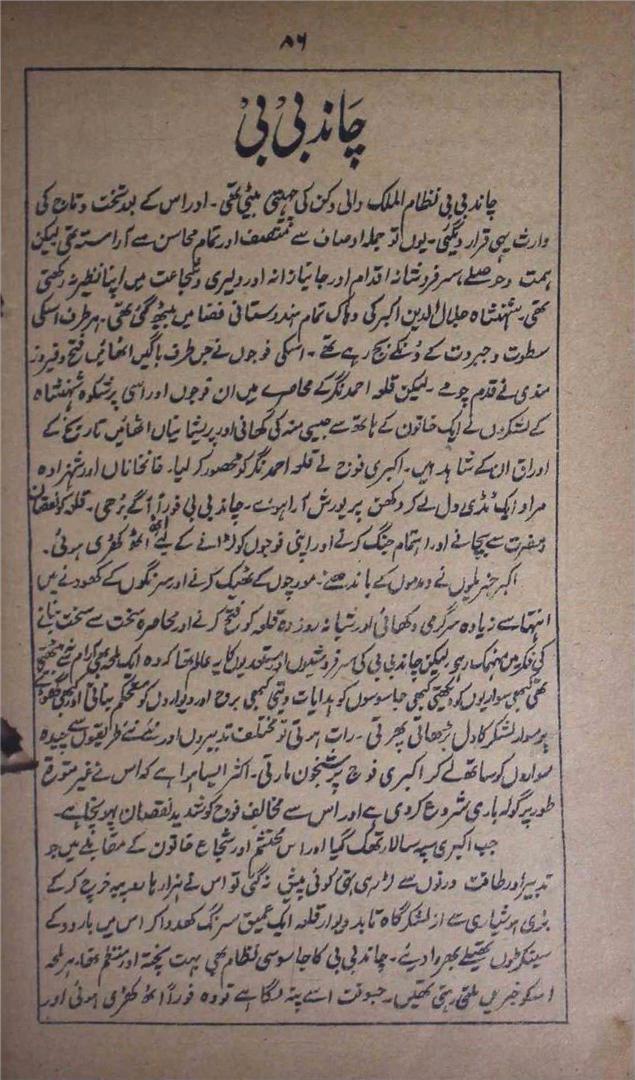 ۸۶
چاند بی بی
چاند بی بی نظام الملک والی دکن کی چہیتی بیٹی تھی۔ اور اس کے بعد تخت و تاج کی
وارث یہی قرار دیگئی۔ یوں تو جملہ اوصاف سے متصف اور تمام محاسن سے آراستہ تھی لیکن
ہمت و حوصلے، سرفروشانہ اقدام اور جانبازانہ اور دلیری و شجاعت میں اپنا نظیر نہ رکھتی
تھی۔ شہنشاہ جلال الدین اکبر کی دھاک تمام ہندوستانی فضا میں بیٹھ گئی تھی۔ ہر طرف اسکی
سطوت و جبروت کے ڈنکے بج رہے تھے۔ اسکی فوجوں نے جس طرف باگیں اٹھائیں فتح و فیروز
مندی نے قدم چومے۔ لیکن قلعہ احمد نگر کے محاصرے میں ان فوجوں اور اسی پرشکوہ شہنشاہ
کے لشکروں نے ایک خاتون کے ہاتھ سے جیسی منہ کی کھائی اور پریشانیاں اٹھائیں تاریخ کے
اوراق ان کے شاہد ہیں۔ اکبری فوج نے قلعہ احمد نگر کو محصور کر لیا۔ خانخاناں اور شہزادہ
مراد ایک ٹڈی دل لے کر دکھن پر یورش آرا ہوئے۔ چاند بی بی فوراً آگے بڑھی۔ قلعہ کو نقصان
و مضرت سے بچانے اور اہتمام جنگ کرنے اور اپنی فوجوں کو لڑانے کے لیے اٹھ کھڑی ہوئی۔
اکبر جنریلوں نے دمدموں کے باندھنے۔ مورچوں کے ٹھیک کرنے اور سرنگوں کے کھودنے میں
انتہا سے زیادہ سرگرمی دکھائی اور شبانہ روز وہ قلعہ کو فتح کرنے اور محاصرہ سخت سے سخت بنانے
کی فکر میں منہمک رہی لیکن چاند بی بی کی سرفروشیوں اور مستعدیوں کا یہ عالم تھا کہ وہ ایک لمحہ بھی آرام سے نہ بیٹھتی
تھی کبھی سواریوں کو دیکھتی کبھی جاسوسوں کو ہدایات دیتی کبھی بروج اور دیواروں کو مستحکم بناتی اور کبھی گھوڑے
پر سوار لشکر کا دل بڑھاتی پھرتی۔ رات ہوتی تو مختلف تدبیروں اور نئے نئے طریقوں سے چیدہ
سواروں کو ساتھ لے کر اکبری فوج پر شبخون مارتی۔ اکثر ایسا ہوا ہے کہ اس نے غیر متوقع
طور پر گولہ باری شروع کر دی ہے اور اس سے مخالف فوج کو شدید نقصان پہونچا ہے۔
جب اکبری سپہ سالار تھک گیا اور اس محتشم اور شجاع خاتون کے مقابلے میں جو
تدبیر اور طاقت دونوں سے لڑ رہی تھی کوئی پیش نہ گئی تو اس نے ہزارہا روپیہ خرچ کر کے
بڑی ہوشیاری سے از لشکر گاہ تا بہ دیوار قلعہ ایک عمیق سرنگ کھدوا کر اس میں بارود کے
سینکڑوں تھیلے بھروا دیئے۔ چاند بی بی کا جاسوسی نظام بھی بہت پختہ اور منتظم تھا، ہر لمحہ
اسکو خبریں ملتی رہتی تھیں۔ جسوقت اسے پتہ لگا ہے تو وہ فوراً اٹھ کھڑی ہوئی اور